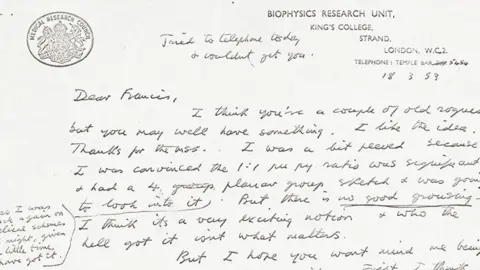 MEDICAL RESEARCH COUNCIL
BIOPHYSICS RESEARCH UNIT,
KING'S COLLEGE,
STRAND,
LONDON, W.C.2.
TELEPHONE: TEMPLE BAR 5454
18 3 53
Tried to telephone today
& couldn't get you.
Dear Francis,
I think you're a couple of old rogues
but you may well have something. I like the idea.
Thanks for the MSS. I was a bit peeved because
I was convinced the 1:1 pu py ratio was significant
& had a 4 planar group sketch & was going
to look into it. But there is no good grousing
I think its a very exciting notion & who the
hell got it isnt what matters.
But I hope you wont mind me being
I was
again on
helical schemes
might, given
little time,
have got it.
First I think